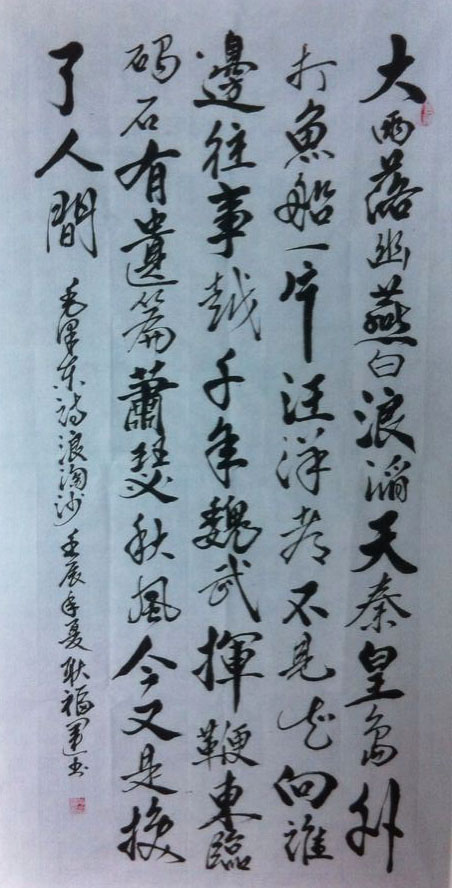 大雨落幽燕白浪滔天秦皇島外
打魚船一片汪洋都不見知向誰
邊往事越千年魏武揮鞭東臨
碣石有遺篇蕭瑟秋風今又是换
了人間
毛澤东詩浪淘沙壬辰年夏耿福運书